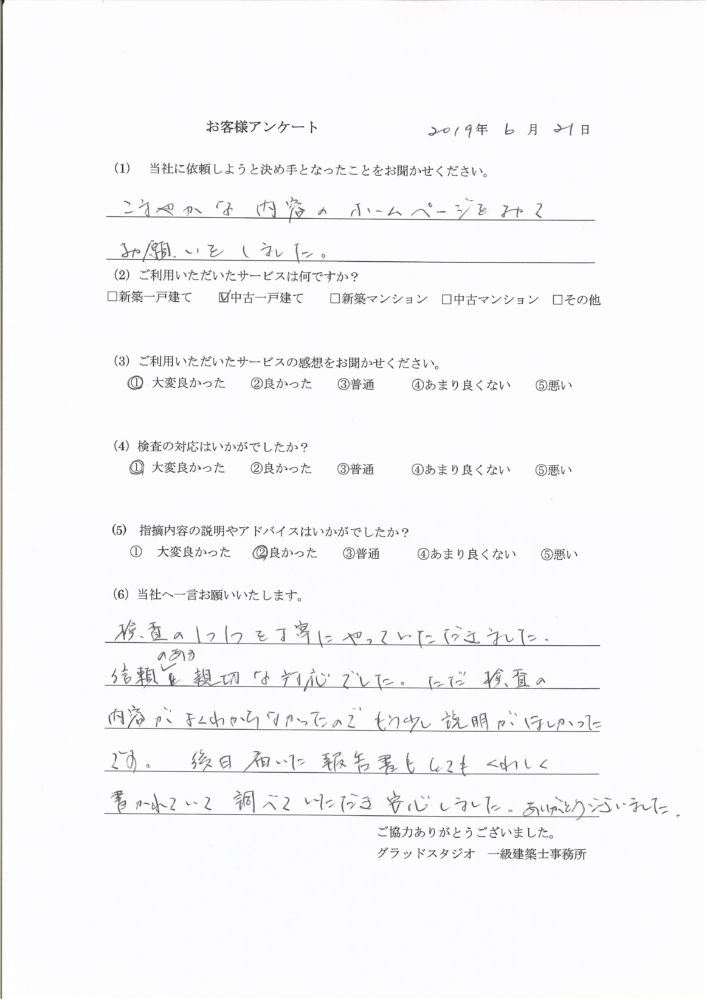 お客様アンケート 2019年 6月 21日
(1) 当社に依頼しようと決め手となったことをお聞かせください。
こまやかな内容のホームページをみて
お願いをしました。
(2) ご利用いただいたサービスは何ですか?
□新築一戸建て ☑中古一戸建て □新築マンション □中古マンション □その他
(3) ご利用いただいたサービスの感想をお聞かせください。
① 大変良かった ②良かった ③普通 ④あまり良くない ⑤悪い
(4) 検査の対応はいかがでしたか?
① 大変良かった ②良かった ③普通 ④あまり良くない ⑤悪い
(5) 指摘内容の説明やアドバイスはいかがでしたか?
① 大変良かった ②良かった ③普通 ④あまり良くない ⑤悪い
(6) 当社へ一言お願いいたします。
検査の1つ1つを丁寧にやっていただきました。
信頼のある親切な対応でした。ただ検査の
内容がよくわからなかったのでもう少し説明がほしかった
です。 後日届いた報告書もとてもくわしく
書かれていて調べていただき安心しました。ありがとうございました。
ご協力ありがとうございました。
グラッドスタジオ 一級建築士事務所